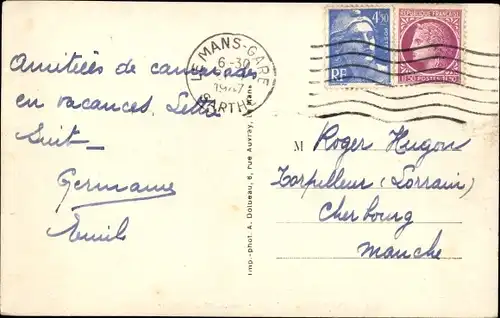 Amitiés de camarades
en vacances. Lettre
suit
Germaine
Emile
LE MANS-GARE
6-30
1947
SARTHE
4,50
RF
REPUBLIQUE FRANÇAISE
1f50 POSTES 1f50
Imp.-phot. A. Dolbeau, 6, rue Auvray, Le Mans
M Roger Hugon
Torpilleur (Lorrain)
Cherbourg
Manche